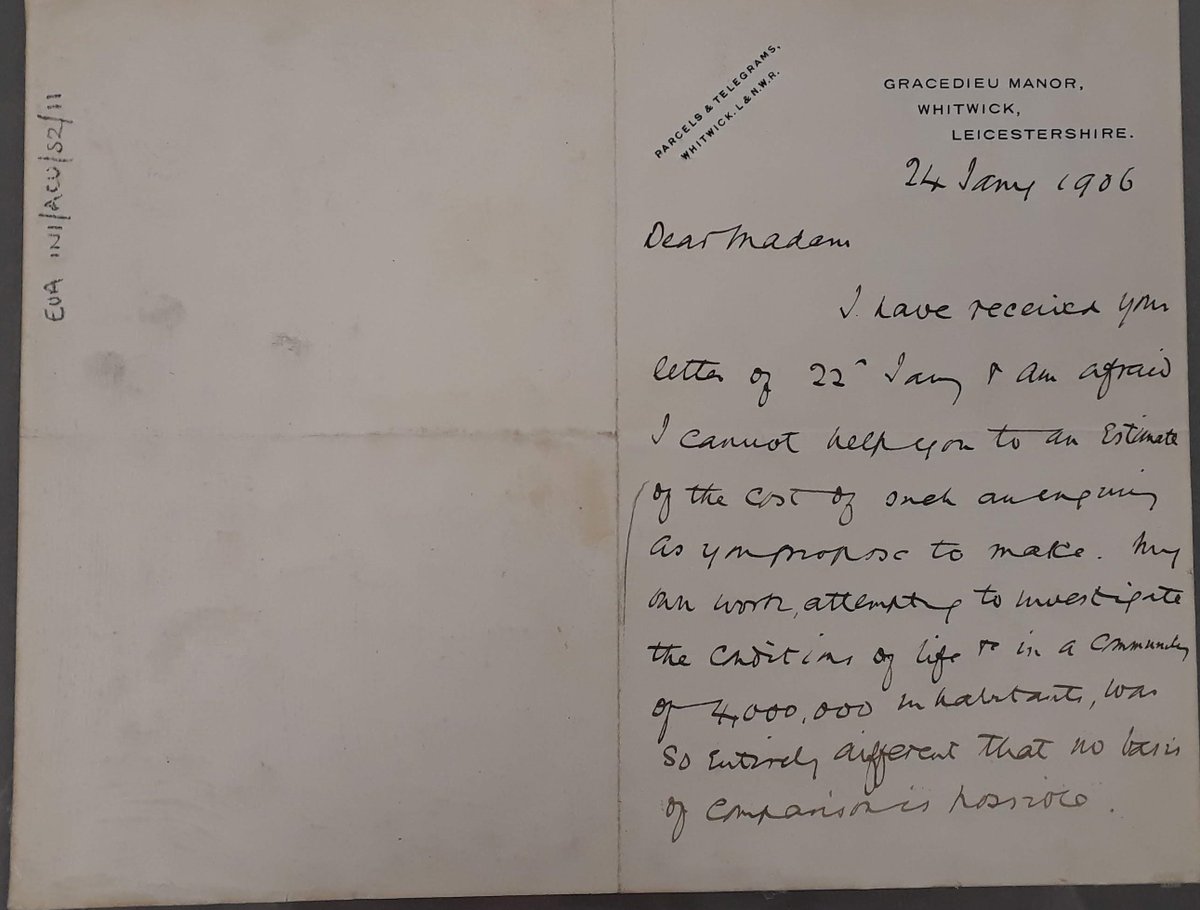 EUA IN1/ACU/S2/11
PARCELS & TELEGRAMS,
WHITWICK. L & N.W.R.
GRACEDIEU MANOR,
WHITWICK,
LEICESTERSHIRE.
24 Jany 1906
Dear Madam
I have received your
letter of 22 Jany & am afraid
I cannot help you to an Estimate
of the cost of such an enquiry
as you propose to make. My
own work, attempting to investigate
the conditions of life &c in a community
of 4,000,000 inhabitants, was
so entirely different that no basis
of comparison is possible.